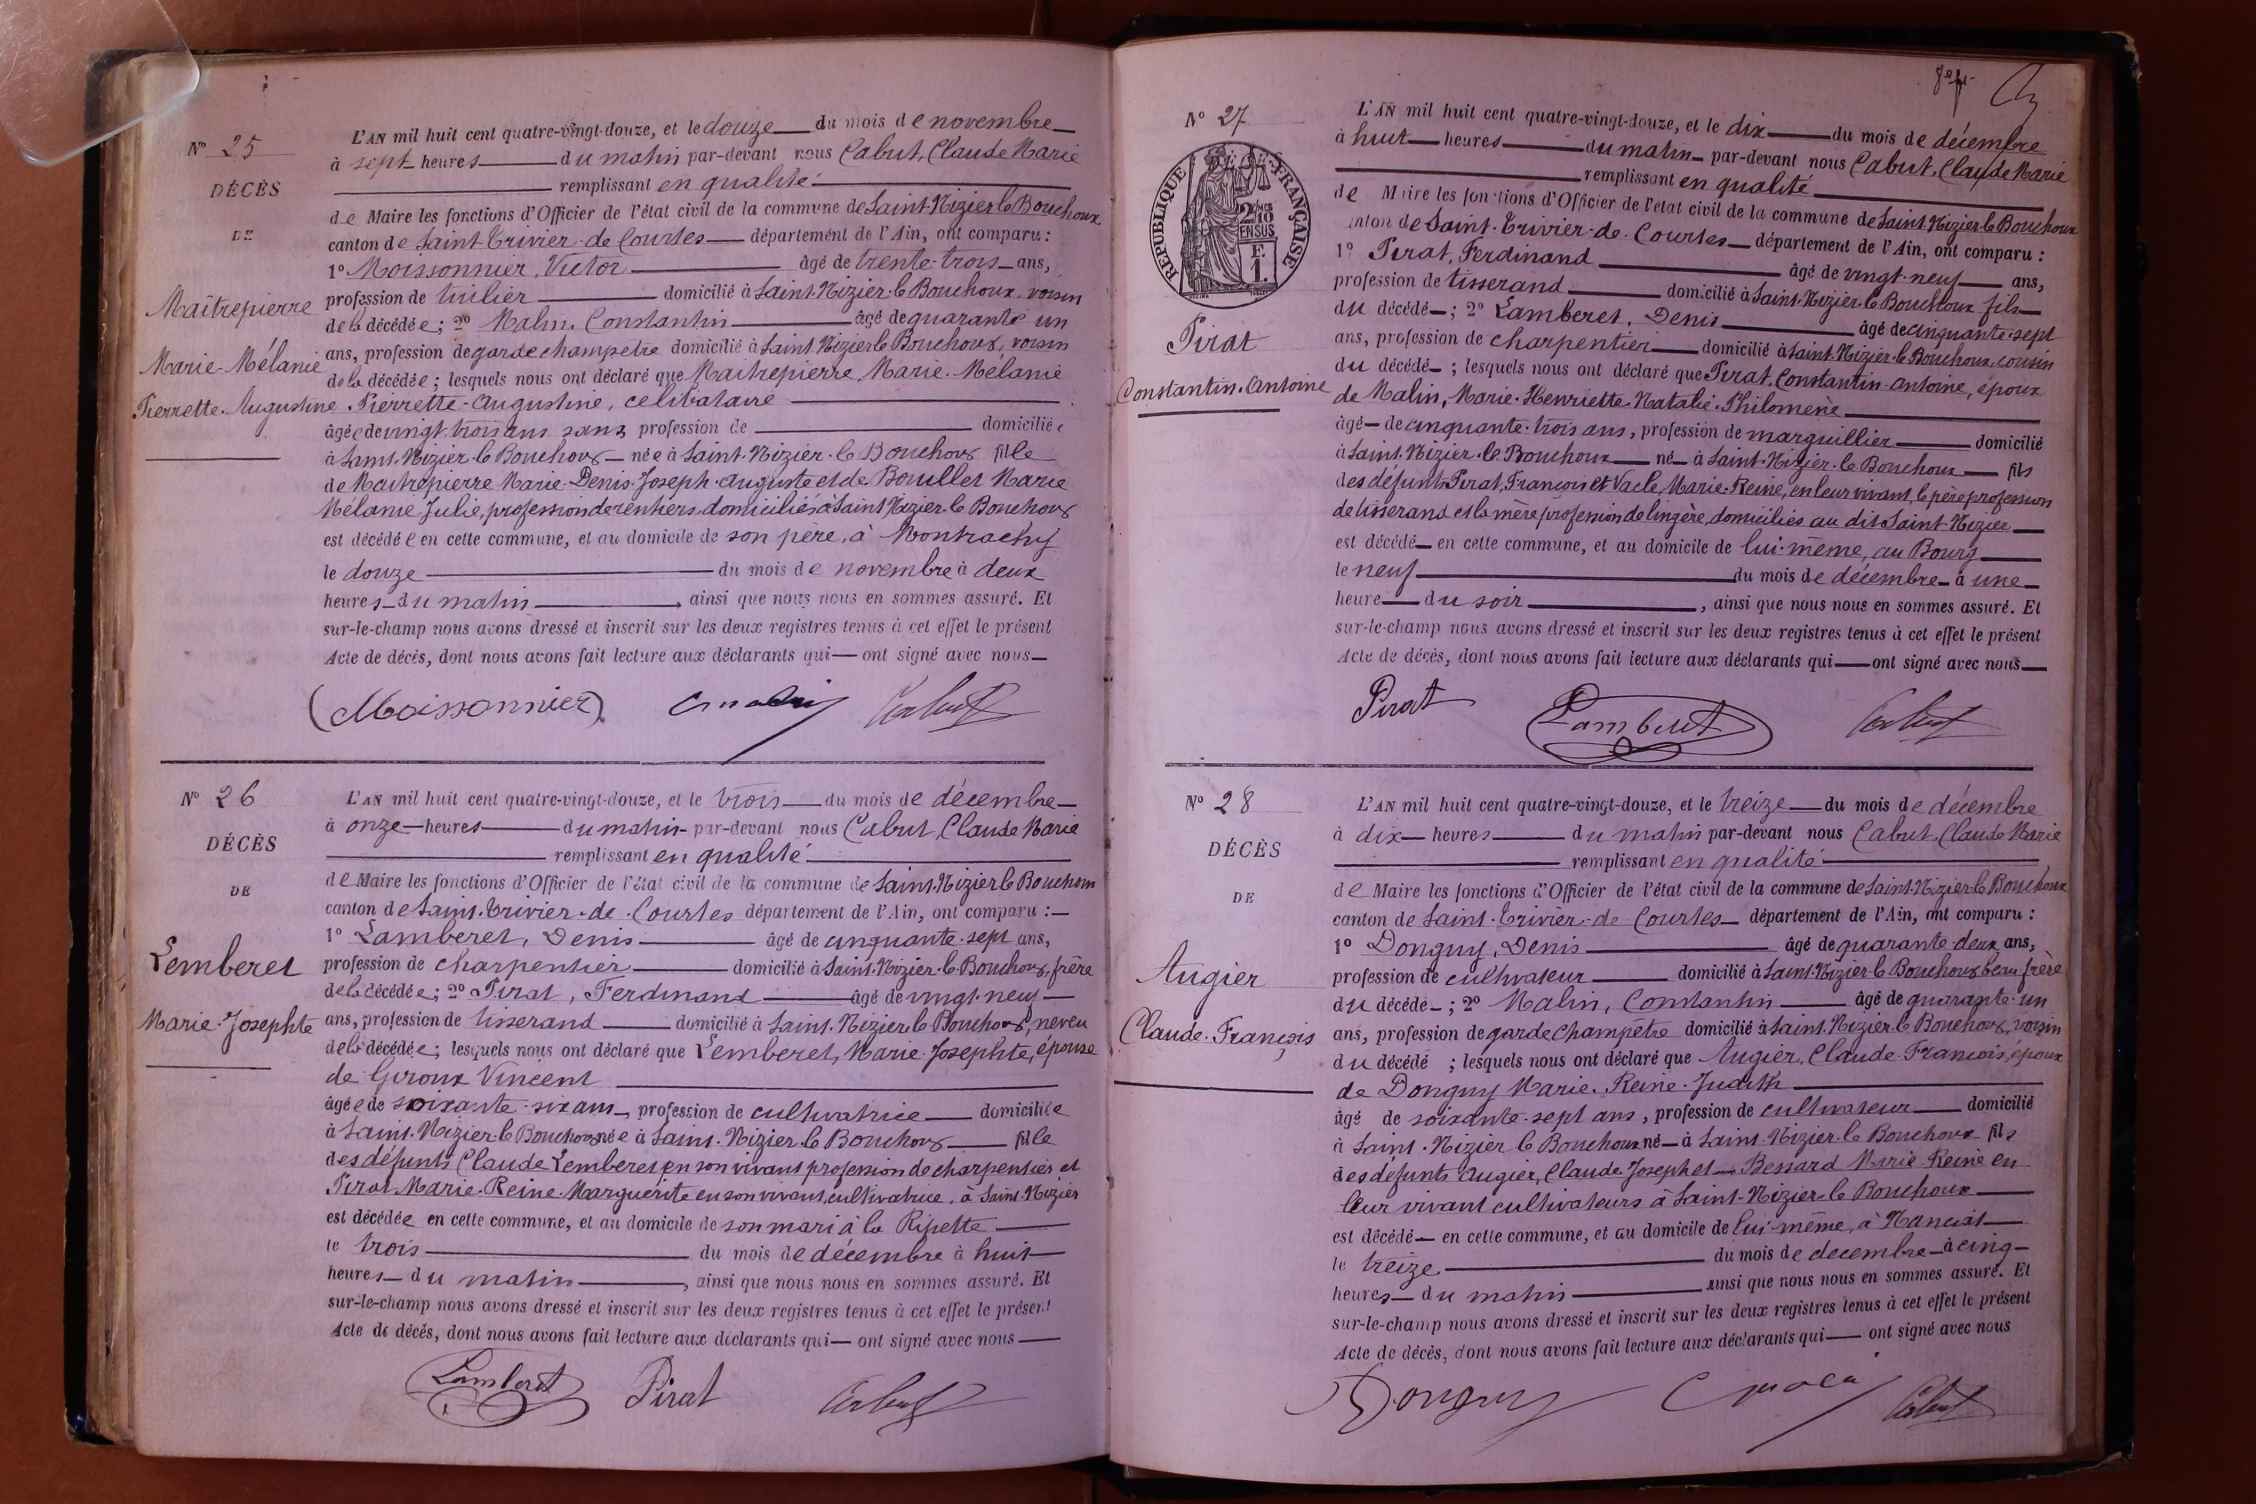 Nº 25
DÉCÈS
DE
Maîtrepierre
Marie-Mélanie
Pierrette-Augustine
L'AN mil huit cent quatre-vingt-douze, et le douze du mois de novembre
à sept heures du matin par-devant nous Cabut, Claude Marie
remplissant en qualité
de Maire les fonctions d'Officier de l'état civil de la commune de Saint-Nizier le Bouchoux
canton de Saint-Trivier-de-Courtes département de l'Ain, ont comparu :
1º Moissonnier, Victor âgé de trente-trois ans,
profession de tuilier domicilié à Saint-Nizier-le-Bouchoux, voisin
de la décédée ; 2º Malin, Constantin âgé de quarante un
ans, profession de garde champêtre domicilié à Saint Nizier le Bouchoux, voisin
de la décédée ; lesquels nous ont déclaré que Maitrepierre, Marie-Mélanie
Pierrette-Augustine, célibataire
âgée de vingt-trois ans sans profession de domiciliée
à Saint-Nizier-le-Bouchoux née à Saint-Nizier-le Bouchoux fille
de Maitrepierre Marie-Denis-Joseph-Auguste et de Boullet Marie
Mélanie Julie, profession de rentiers domiciliés à Saint Nizier-le Bouchoux
est décédée en cette commune, et au domicile de son père, à Montrachy
le douze du mois de novembre à deux
heures du matin, ainsi que nous nous en sommes assuré. Et
sur-le-champ nous avons dressé et inscrit sur les deux registres tenus à cet effet le présent
Acte de décès, dont nous avons fait lecture aux déclarants qui ont signé avec nous
Moissonnier Cmalin Cabut
Nº 26
DÉCÈS
DE
Lemberet
Marie-Josephte
L'AN mil huit cent quatre-vingt-douze, et le trois du mois de décembre
à onze heures du matin par-devant nous Cabut, Claude Marie
remplissant en qualité
de Maire les fonctions d'Officier de l'état civil de la commune de Saint-Nizier le Bouchoux
canton de Saint-Trivier-de-Courtes département de l'Ain, ont comparu :
1º Lamberet, Denis âgé de cinquante-sept ans,
profession de charpentier domicilié à Saint-Nizier-le-Bouchoux, frère
de la décédée ; 2º Pirat, Ferdinand âgé de vingt-neuf
ans, profession de tisserand domicilié à Saint-Nizier le Bouchoux, neveu
de la décédée ; lesquels nous ont déclaré que Lemberet, Marie-Josephte, épouse
de Giroux Vincent
âgée de soixante-six ans, profession de cultivatrice domiciliée
à Saint-Nizier le Bouchoux née à Saint-Nizier-le Bouchoux fille
des défunts Claude Lemberet en son vivant profession de charpentier et
Pirat Marie-Reine-Marguerite en son vivant, cultivatrice, à Saint-Nizier
est décédée en cette commune, et au domicile de son mari à la Ripette
le trois du mois de décembre à huit
heures du matin, ainsi que nous nous en sommes assuré. Et
sur-le-champ nous avons dressé et inscrit sur les deux registres tenus à cet effet le présent
Acte de décès, dont nous avons fait lecture aux déclarants qui ont signé avec nous
Lamberet Pirat Cabut
Nº 27
RÉPUBLIQUE FRANÇAISE
2/10 EN SUS
F. 1.
Pirat
Constantin-Antoine
L'AN mil huit cent quatre-vingt-douze, et le dix du mois de décembre
à huit heures du matin par-devant nous Cabut, Claude Marie
remplissant en qualité
de Maire les fonctions d'Officier de l'état civil de la commune de Saint-Nizier le Bouchoux
canton de Saint-Trivier-de-Courtes département de l'Ain, ont comparu :
1º Pirat, Ferdinand âgé de vingt-neuf ans,
profession de tisserand domicilié à Saint-Nizier-le Bouchoux fils
du décédé ; 2º Lamberet, Denis âgé de cinquante-sept
ans, profession de charpentier domicilié à Saint-Nizier-le Bouchoux, cousin
du décédé ; lesquels nous ont déclaré que Pirat, Constantin-Antoine, époux
de Malin, Marie-Henriette-Natalie-Philomène
âgé de cinquante-trois ans, profession de marguillier domicilié
à Saint-Nizier-le Bouchoux né à Saint-Nizier-le Bouchoux fils
des défunts Pirat, François et Vacle, Marie-Reine, en leur vivant, le père profession
de tisserand et la mère profession de lingère, domiciliés au dit Saint-Nizier
est décédé en cette commune, et au domicile de lui-même, au Bourg
le neuf du mois de décembre à une
heure du soir, ainsi que nous nous en sommes assuré. Et
sur-le-champ nous avons dressé et inscrit sur les deux registres tenus à cet effet le présent
Acte de décès, dont nous avons fait lecture aux déclarants qui ont signé avec nous
Pirat Lamberet Cabut
Nº 28
DÉCÈS
DE
Augier
Claude-François
L'AN mil huit cent quatre-vingt-douze, et le treize du mois de décembre
à dix heures du matin par-devant nous Cabut, Claude Marie
remplissant en qualité
de Maire les fonctions d'Officier de l'état civil de la commune de Saint-Nizier-le Bouchoux
canton de Saint-Trivier-de Courtes département de l'Ain, ont comparu :
1º Donguy, Denis âgé de quarante deux ans,
profession de cultivateur domicilié à Saint-Nizier-le Bouchoux beau frère
du décédé ; 2º Malin, Constantin âgé de quarante-un
ans, profession de garde champêtre domicilié à Saint-Nizier-le Bouchoux, voisin
du décédé ; lesquels nous ont déclaré que Augier, Claude-François, époux
de Donguy Marie-Reine-Judith
âgé de soixante-sept ans, profession de cultivateur domicilié
à Saint-Nizier le Bouchoux né à Saint-Nizier-le Bouchoux fils
des défunts Augier, Claude Joseph et Bessard Marie Reine en
leur vivant cultivateurs à Saint-Nizier-le Bouchoux
est décédé en cette commune, et au domicile de lui-même, à Manciat
le treize du mois de décembre à cinq
heures du matin ainsi que nous nous en sommes assuré. Et
sur-le-champ nous avons dressé et inscrit sur les deux registres tenus à cet effet le présent
Acte de décès, dont nous avons fait lecture aux déclarants qui ont signé avec nous
Donguy Cmalin Cabut